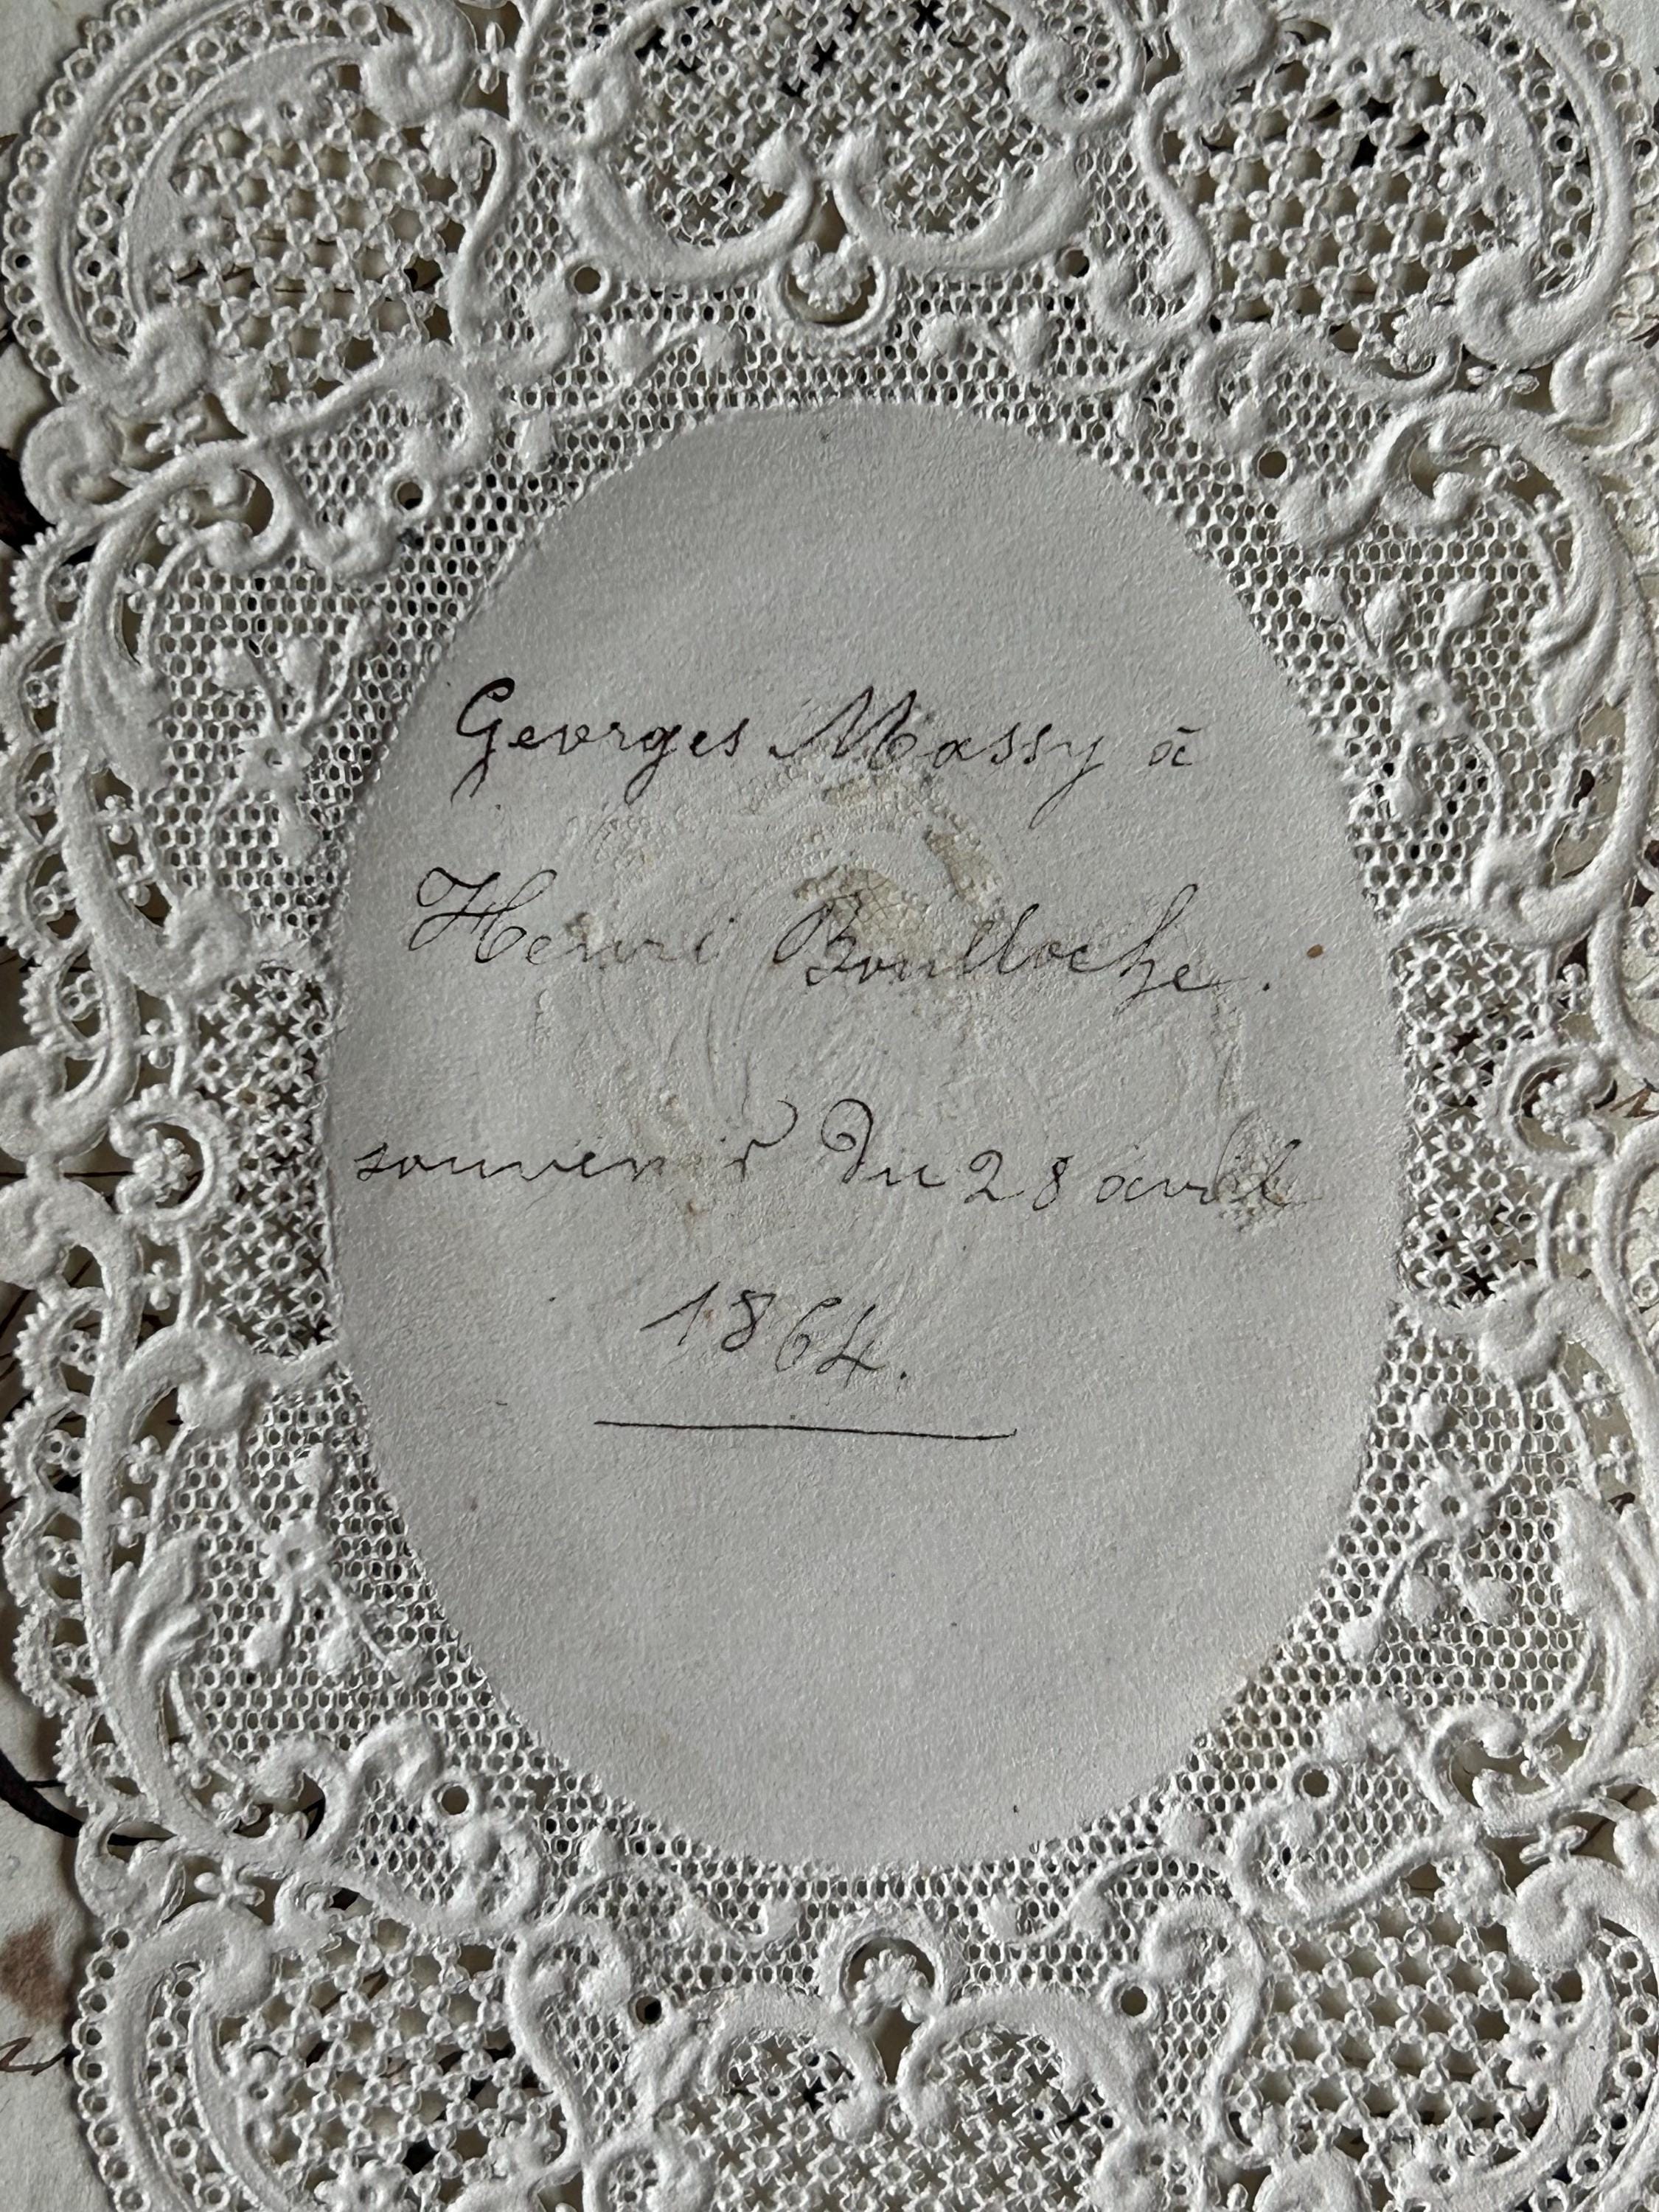 Georges Massy à
Henri Boulloche.
souvenir du 28 avril
1864.